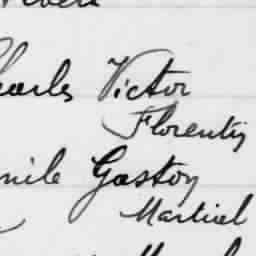 harles Victor
Florentin
mile Gaston
Martial